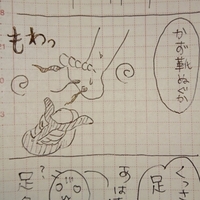 かず靴ぬぐか
もわっ
くっさ
足
あは
?
足